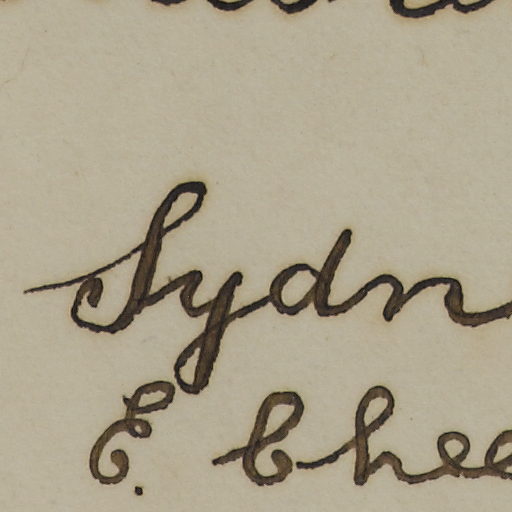 Sydn
E. Chee